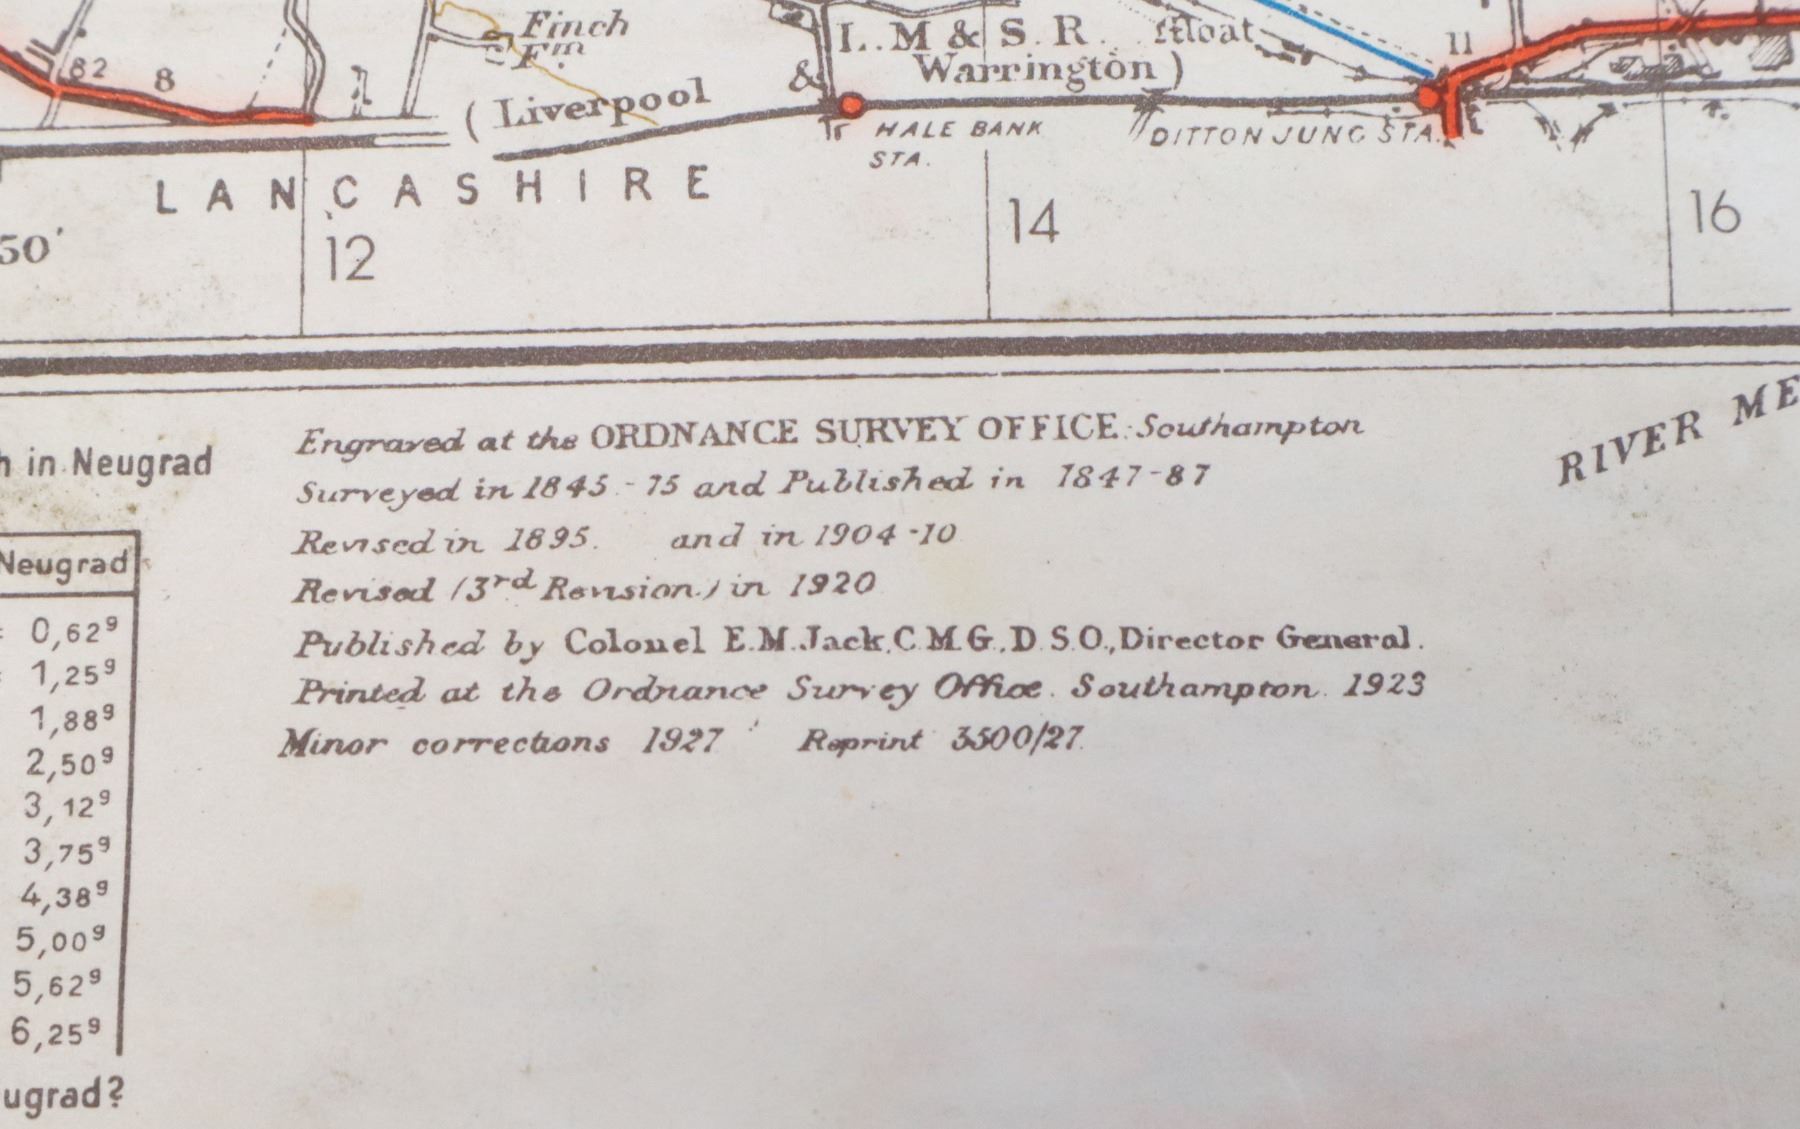 Finch
Fm
L. M & S. R. float
11
82 8
( Liverpool & Warrington )
HALE BANK
STA.
DITTON JUNC STA.
LANCASHIRE
50' 12 14 16
RIVER ME
h in Neugrad
Engraved at the ORDNANCE SURVEY OFFICE. Southampton
Surveyed in 1845 - 75 and Published in 1847-87
Revised in 1895. and in 1904-10
Revised (3rd Revision.) in 1920
Published by Colonel E.M.Jack,C.M.G.,D.S.O.,Director General.
Printed at the Ordnance Survey Office. Southampton. 1923
Minor corrections 1927 Reprint 3500/27.
Neugrad
= 0,62g
= 1,25g
1,88g
2,50g
3,12g
3,75g
4,38g
5,00g
5,62g
6,25g
ugrad?